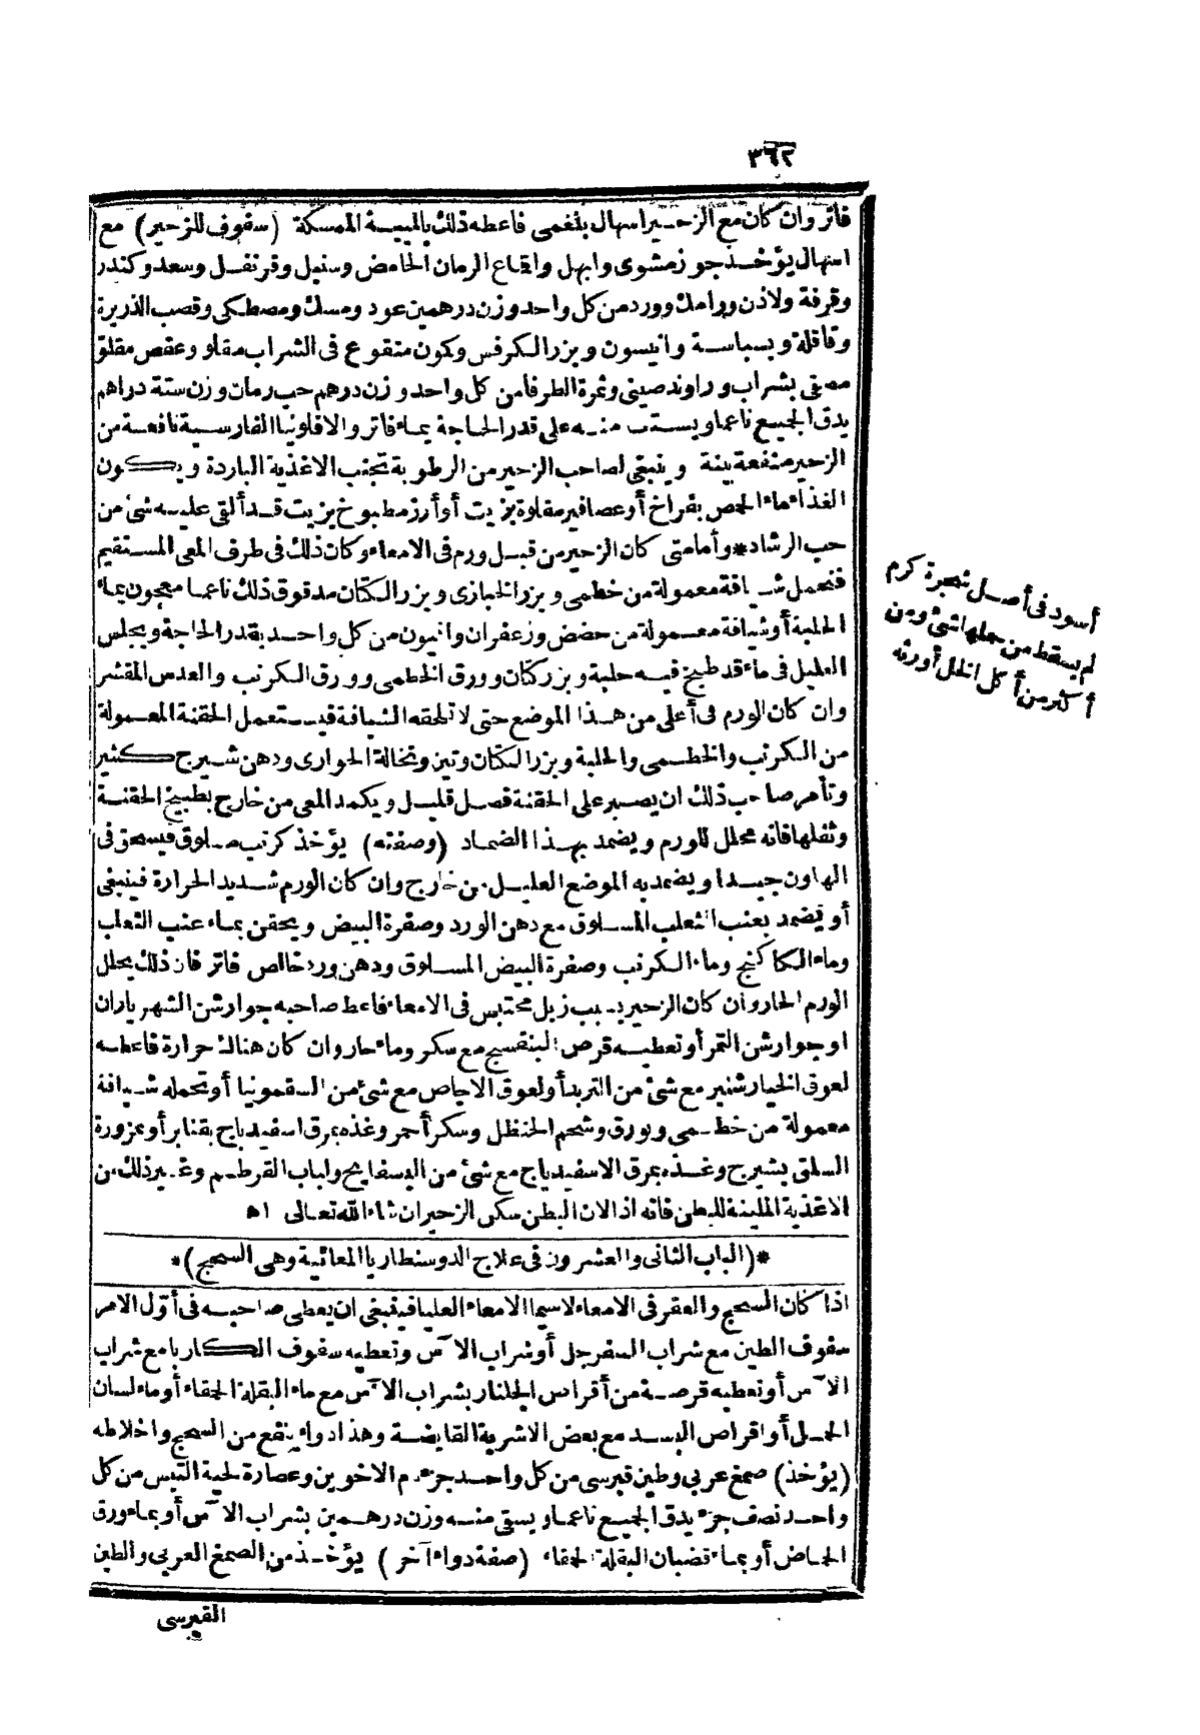 ٣٦٢
فاتر وان كان مع الزحير اسهال بلغمى فاعطه ذلك بالميبة الممسكة (سفوف للزحير) مع
اسهال يؤخذ جوز مشوى وابهل واقماع الرمان الحامض وسنبل وقرنفل وسعد وكندر
وقرفة ولاذن ورامك وورد من كل واحد وزن درهمين عود ومسك ومصطكى وقصب الذريرة
وقاقلة وبسباسة وانيسون وبزر الكرفس وكمون منقوع فى الشراب مقلو وعفص مقلو
مطفى بشراب وراوند صينى وثمرة الطرفا من كل واحد وزن درهم حب رمان وزن ستة دراهم
يدق الجميع ناعما ويستف منه على قدر الحاجة بماء فاتر والافلونيا الفارسية نافعة من
الزحير منفعة بينة وينبغى لصاحب الزحير من الرطوبة تجنب الاغذية الباردة ويكون
الغذاء ماء الحمص بفراخ أو عصافير مقلوة بزيت أو أرز مطبوخ بزيت قد ألقى عليه شئ من
حب الرشاد * وأما متى كان الزحير من قبل ورم فى الامعاء وكان ذلك فى طرف المعى المستقيم
فتحمل شيافة معمولة من خطمى وبزر الخبازى وبزر الكتان مدقوق ذلك ناعما معجون بماء
الحلبة أو شيافة معمولة من حضض وزعفران وافيون من كل واحد بقدر الحاجة ويجلس
العليل فى ماء قد طبخ فيه حلبة وبزر كتان وورق الخطمى وورق الكرنب والعدس المقشر
وان كان الورم فى أعلى من هذا الموضع حتى لا تلحقه الشيافة فيستعمل الحقنة المعمولة
من الكرنب والخطمى والحلبة وبزر الكتان وتين ونخالة الحوارى ودهن شيرج كثير
وتأمر صاحب ذلك ان يصبر على الحقنة فصل قليل ويكمد المعى من خارج بطبيخ الحقنة
وثفلها فانه محلل للورم ويضمد بهذا الضماد (وصفته) يؤخذ كرنب مسلوق فيسحق فى
الهاون جيدا ويضمد به الموضع العليل من خارج وان كان الورم شديد الحرارة فينبغى
أو يضمد بعنب الثعلب المسلوق مع دهن الورد وصفرة البيض ويحقن بماء عنب الثعلب
وماء الكاكنج وماء الكرنب وصفرة البيض المسلوق ودهن ورد خالص فاتر فان ذلك يحلل
الورم الحار وان كان الزحير بسبب زبل محتبس فى الامعاء فاعط صاحبه جوارشن الشهرياران
او جوارشن التمر أو تعطيه قرص البنفسج مع سكر وماء حار وان كان هناك حرارة فاعطه
لعوق الخيارشنبر مع شئ من التربد أو لعوق الاجاص مع شئ من السقمونيا أو تحمله شيافة
معمولة من خطمى وبورق وشحم الحنظل وسكر أحمر وغذه بمرق اسفيدباج بقنابر أو بمزورة
السلق بشيرج وغذه بمرق الاسفيدباج مع شئ من البسفايج ولباب القرطم وغير ذلك من
الاغذية الملينة للبطن فانه اذا لان البطن سكن الزحير ان شاء الله تعالى اه
*(الباب الثانى والعشرون فى علاج الدوسنطاريا المعائية وهى السحج)*
اذا كان السحج والعقر فى الامعاء لاسيما الامعاء العليا فينبغى ان يعطى صاحبه فى أوّل الامر
سفوف الطين مع شراب السفرجل أو شراب الآس وتعطيه سفوف الكاربا مع شراب
الآس أو تعطيه قرصة من أقراص الجلنار بشراب الآس مع ماء البقلة الحمقاء أو ماء لسان
الحمل أو اقراص البسد مع بعض الاشربة القابضة وهذا دواء ينفع من السحج واخلاطه
(يؤخذ) صمغ عربى وطين قبرسى من كل واحد جزء دم الاخوين وعصارة لحية التيس من كل
واحد نصف جزء يدق الجميع ناعما ويسقى منه وزن درهمين بشراب الآس أو بماء ورق
الحماض أو بماء قضبان البقلة الحمقاء (صفة دواء آخر) يؤخذ من الصمغ العربى والطين
القبرسى
أسود فى أصل شجرة كرم
لم يسقط من حملها شئ ومن
أكثر من أكل الخل أورثه